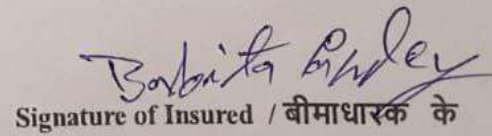 Babita
Signature of Insured / बीमाधारक के